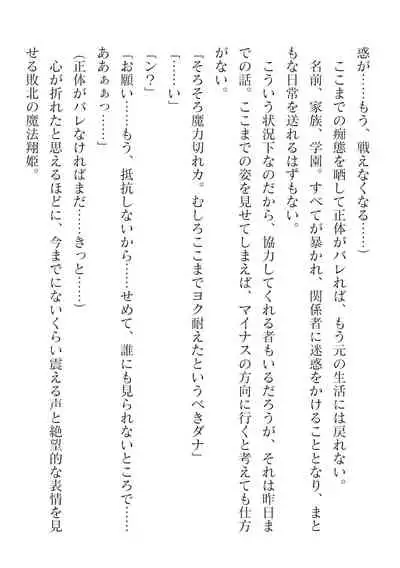 惑が……もう、戦えなくなる……)
ここまでの痴態を晒して正体がバレれば、もう元の生活には戻れない。
名前、家族、学園。すべてが暴かれ、関係者に迷惑をかけることとなり、まと
もな日常を送れるはずもない。
こういう状況下なのだから、協力してくれる者もいるだろうが、それは昨日ま
での話。ここまでの姿を見せてしまえば、マイナスの方向に行くと考えても仕方
がない。
『そろそろ魔力切れカ。むしろここまでヨク耐えたというべきダナ』
「……い」
『ン？』
「お願い……もう、抵抗しないから……せめて、誰にも見られないところで……
ああぁぁっ……」
(正体がバレなければまだ……きっと……)
心が折れたと思えるほどに、今までにないくらい震える声と絶望的な表情を見
せる敗北の魔法翔姫。